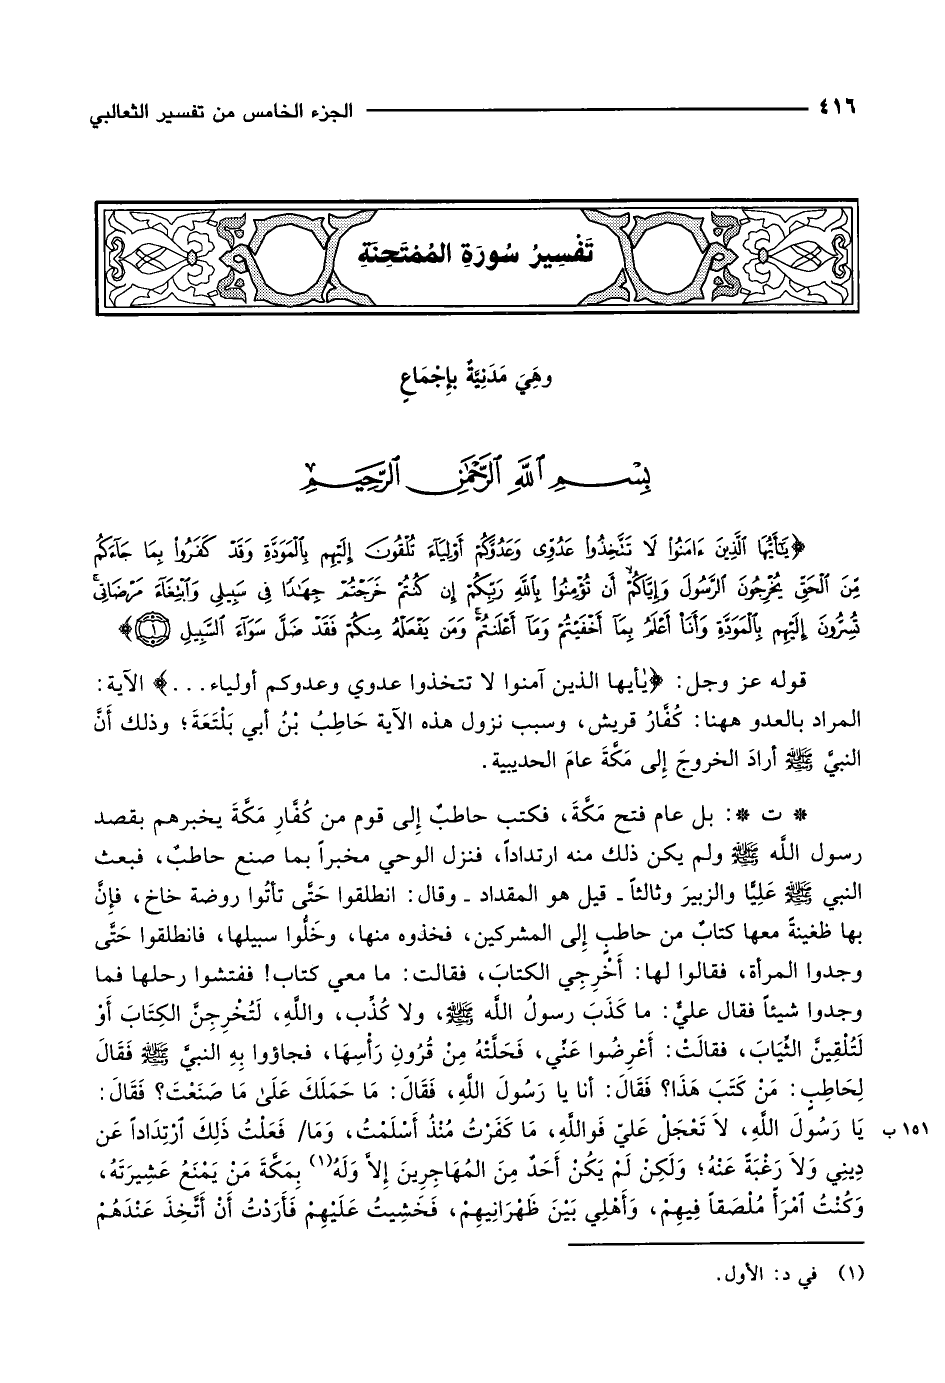 ٤١٦ الجزء الخامس من تفسير الثعالبي
تَفْسِيرُ سُورَةِ المُمْتَحِنَةِ
وهَيَ مَدَنِيَّةٌ بإِجْمَاعٍ
بِسْمِ ٱللَّهِ ٱلرَّحْمَٰنِ ٱلرَّحِيمِ
﴿يَٰٓأَيُّهَا ٱلَّذِينَ ءَامَنُوا۟ لَا تَتَّخِذُوا۟ عَدُوِّى وَعَدُوَّكُمْ أَوْلِيَآءَ تُلْقُونَ إِلَيْهِم بِٱلْمَوَدَّةِ وَقَدْ كَفَرُوا۟ بِمَا جَآءَكُم
مِّنَ ٱلْحَقِّ يُخْرِجُونَ ٱلرَّسُولَ وَإِيَّاكُمْ ۙ أَن تُؤْمِنُوا۟ بِٱللَّهِ رَبِّكُمْ إِن كُنتُمْ خَرَجْتُمْ جِهَٰدًا فِى سَبِيلِى وَٱبْتِغَآءَ مَرْضَاتِى ۚ
تُسِرُّونَ إِلَيْهِم بِٱلْمَوَدَّةِ وَأَنَا۠ أَعْلَمُ بِمَآ أَخْفَيْتُمْ وَمَآ أَعْلَنتُمْ ۚ وَمَن يَفْعَلْهُ مِنكُمْ فَقَدْ ضَلَّ سَوَآءَ ٱلسَّبِيلِ ﴿١﴾﴾
قوله عز وجل: ﴿يٰأيها الذين آمنوا لا تتخذوا عدوي وعدوكم أولياء...﴾ الآية:
المراد بالعدو ههنا: كُفَّارُ قريش، وسبب نزول هذه الآية حَاطِبُ بْنُ أبي بَلْتَعَةَ؛ وذلك أَنَّ
النبيَّ ﷺ أرادَ الخروجَ إِلى مَكَّةَ عامَ الحديبية.
* ت *: بل عام فتح مَكَّةَ، فكتب حاطبٌ إِلى قوم من كُفَّارِ مَكَّةَ يخبرهم بقصد
رسول اللَّه ﷺ ولم يكن ذلك منه ارتداداً، فنزل الوحي مخبراً بما صنع حاطبٌ، فبعث
النبي ﷺ عَلِيًّا والزبيرَ وثالثاً ـ قيل هو المقداد ـ وقال: انطلقوا حَتَّى تأتُوا روضة خاخ، فإِنَّ
بها ظعينةً معها كتابٌ من حاطبٍ إِلى المشركين، فخذوه منها، وخَلُّوا سبيلها، فانطلقوا حَتَّى
وجدوا المرأة، فقالوا لها: أَخْرِجِي الكتابَ، فقالت: ما معي كتاب! ففتشوا رحلها فما
وجدوا شيئاً فقال عليٌّ: ما كَذَبَ رسولُ اللَّه ﷺ، ولا كُذِّب، واللَّهِ، لَتُخْرِجِنَّ الكِتَابَ أَوْ
لَتُلْقِينَّ الثِّيَابَ، فقالَتْ: أَعْرِضُوا عَنِّي، فَحَلَّتْهُ مِنْ قُرُونِ رَأْسِهَا، فجاؤوا بِهِ النبيَّ ﷺ فَقَالَ
لِحَاطِبٍ: مَنْ كَتَبَ هَذَا؟ فَقَالَ: أنا يا رَسُولَ اللَّهِ، فَقَالَ: مَا حَمَلَكَ عَلَىٰ مَا صَنَعْتَ؟ فَقَالَ:
١٥١ ب يَا رَسُولَ اللَّهِ، لاَ تَعْجَلْ عَلَيّ فَواللَّهِ، مَا كَفَرْتُ مُنْذُ أَسْلَمْتُ، وَمَا/ فَعَلْتُ ذَلِكَ ٱرْتِدَاداً عَن
دِينِي وَلاَ رَغْبَةً عَنْهُ؛ وَلَكِنْ لَمْ يَكُنْ أَحَدٌ مِنَ المُهَاجِرِينَ إِلاَّ وَلَهُ(١) بِمَكَّةَ مَنْ يَمْنَعُ عَشِيرَتَهُ،
وَكُنْتُ ٱمْرَأً مُلْصَقاً فِيهِمْ، وَأَهْلِي بَيْنَ ظَهْرَانِيهِمْ، فَخَشِيتُ عَلَيْهِمْ فَأَرَدْتُ أَنْ أَتَّخِذَ عَنْدَهُمْ
(١) في د: الأول.